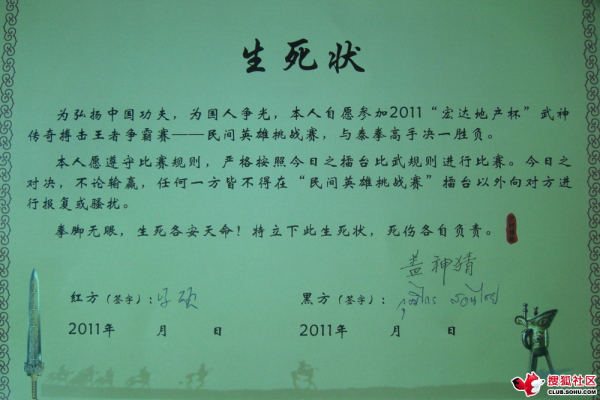 生死状
为弘扬中国功夫，为国人争光，本人自愿参加2011“宏达地产杯”武神
传奇搏击王者争霸赛——民间英雄挑战赛，与泰拳高手决一胜负。
本人愿遵守比赛规则，严格按照今日之擂台比武规则进行比赛。今日之
对决，不论输赢，任何一方皆不得在“民间英雄挑战赛”擂台以外向对方进
行报复或骚扰。
拳脚无眼，生死各安天命！特立下此生死状，死伤各自负责。
盖神猜
红方（签字）：
黑方（签字）：
2011年 月 日
2011年 月 日
搜狐社区
CLUB.SOHU.COM